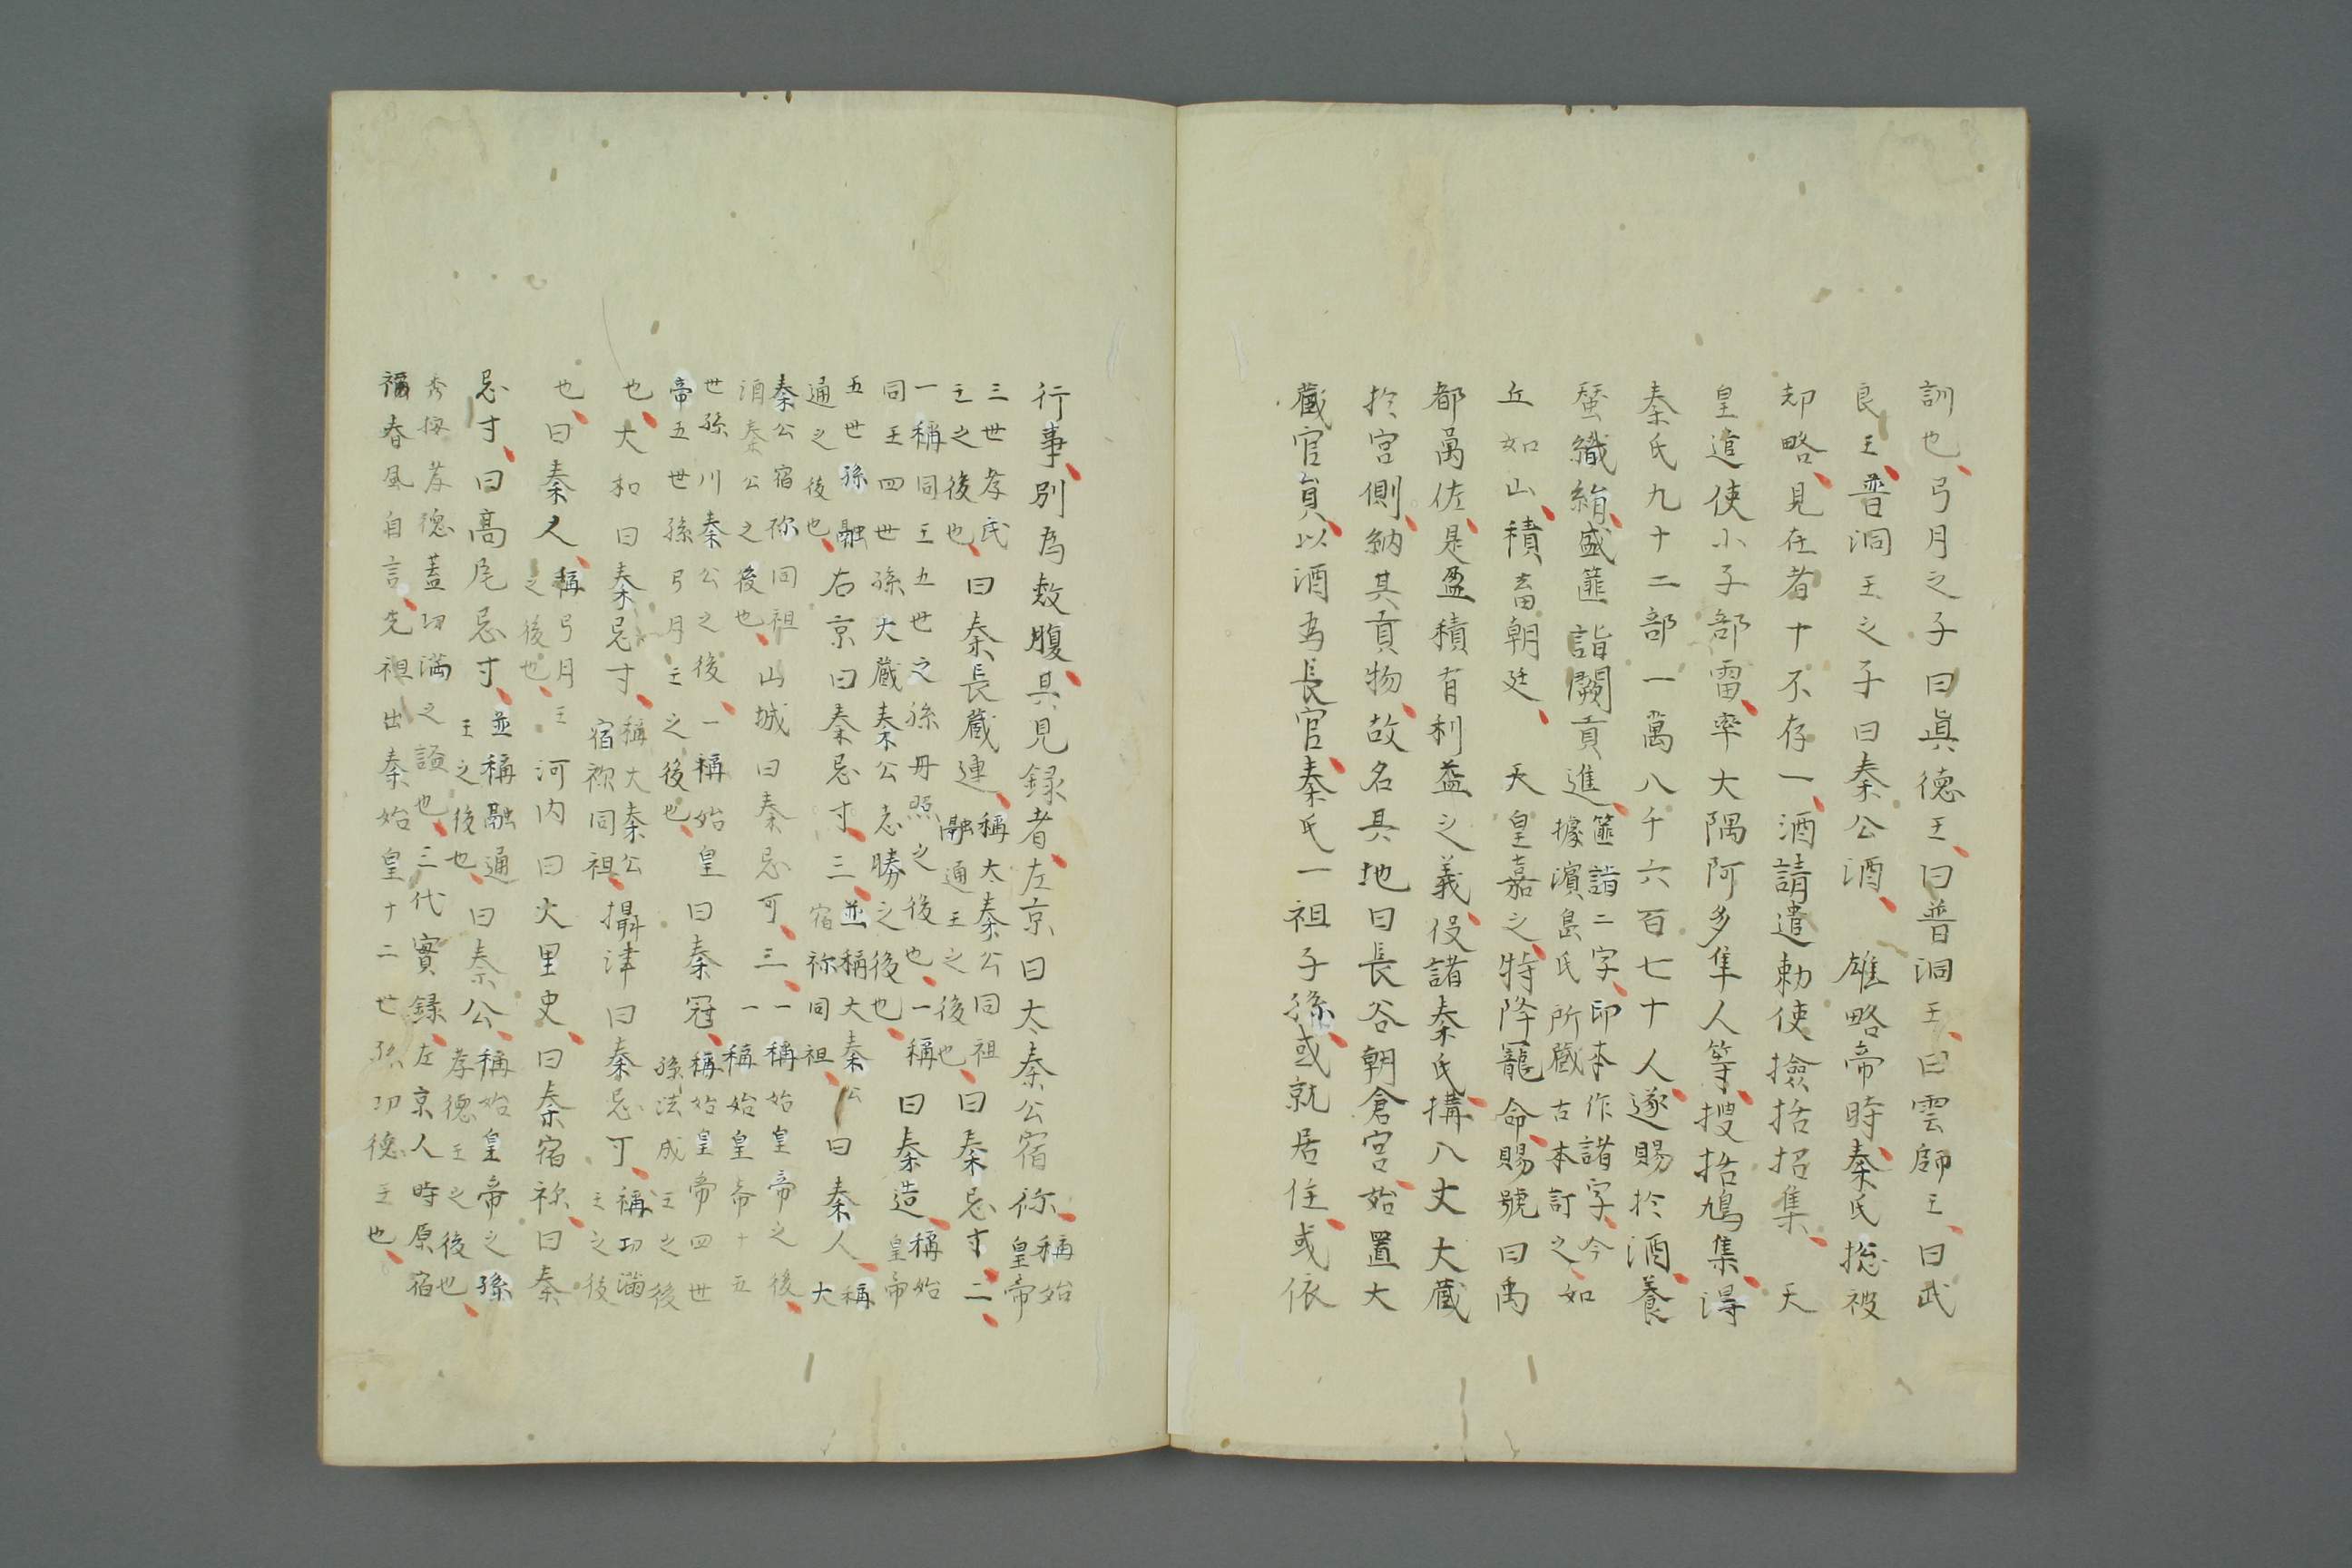 訓也弓月之子曰眞德王曰普洞王曰雲師王曰武
良王普洞王之子曰秦公酒　雄略帝時秦氏捴被
却略見在者十不存一酒請遣勅使撿括招集　天
皇遣使小子部雷率大隅阿多隼人等搜括鳩集得
秦氏九十二部一萬八千六百七十人遂賜於酒養
蚕織絹盛篚詣闕貢進篚詣二字印本作諸字今
據濱島氏所蔵古本訂之如
丘如山積畜朝廷　天皇嘉之特降寵命賜號曰禹
都萬佐是盈積有利益之義役諸秦氏搆八丈大蔵
於宮側納其貢物故名其地曰長谷朝倉宮始置大
藏官員以酒爲長官秦氏一祖子孫或就居住或依
行事別爲数腹具見録者左京曰太秦公宿祢稱始
皇帝
三世孝氏
王之後也曰秦長蔵連稱太秦公同祖
融通王之後也曰秦忌寸二
一稱同王五世之孫丹照之後也一稱
同王四世孫大蔵秦公志勝之後也曰秦造稱始
皇帝
五世孫融
通之後也右京曰秦忌寸三並稱大秦公
宿祢同祖曰秦人稱
大
秦公宿祢同祖
酒秦公之後也山城曰秦忌寸三一稱始皇帝之後
一稱始皇帝十五
世孫川秦公之後一稱始皇
帝五世孫弓月王之後也曰秦冠稱始皇帝四世
孫法成王之後
也大和曰秦忌寸稱大秦公
宿祢同祖攝津曰秦忌寸稱功滿
王之後
也曰秦人稱弓月王
之後也河内曰大里史曰秦宿祢曰秦
忌寸曰高尾忌寸並稱融通
王之後也曰秦公稱始皇帝之孫
孝德王之後也
秀按孝德蓋功満之謚也三代實録左京人時原宿
禰春風自言先祖出秦始皇十二世孫功德王也